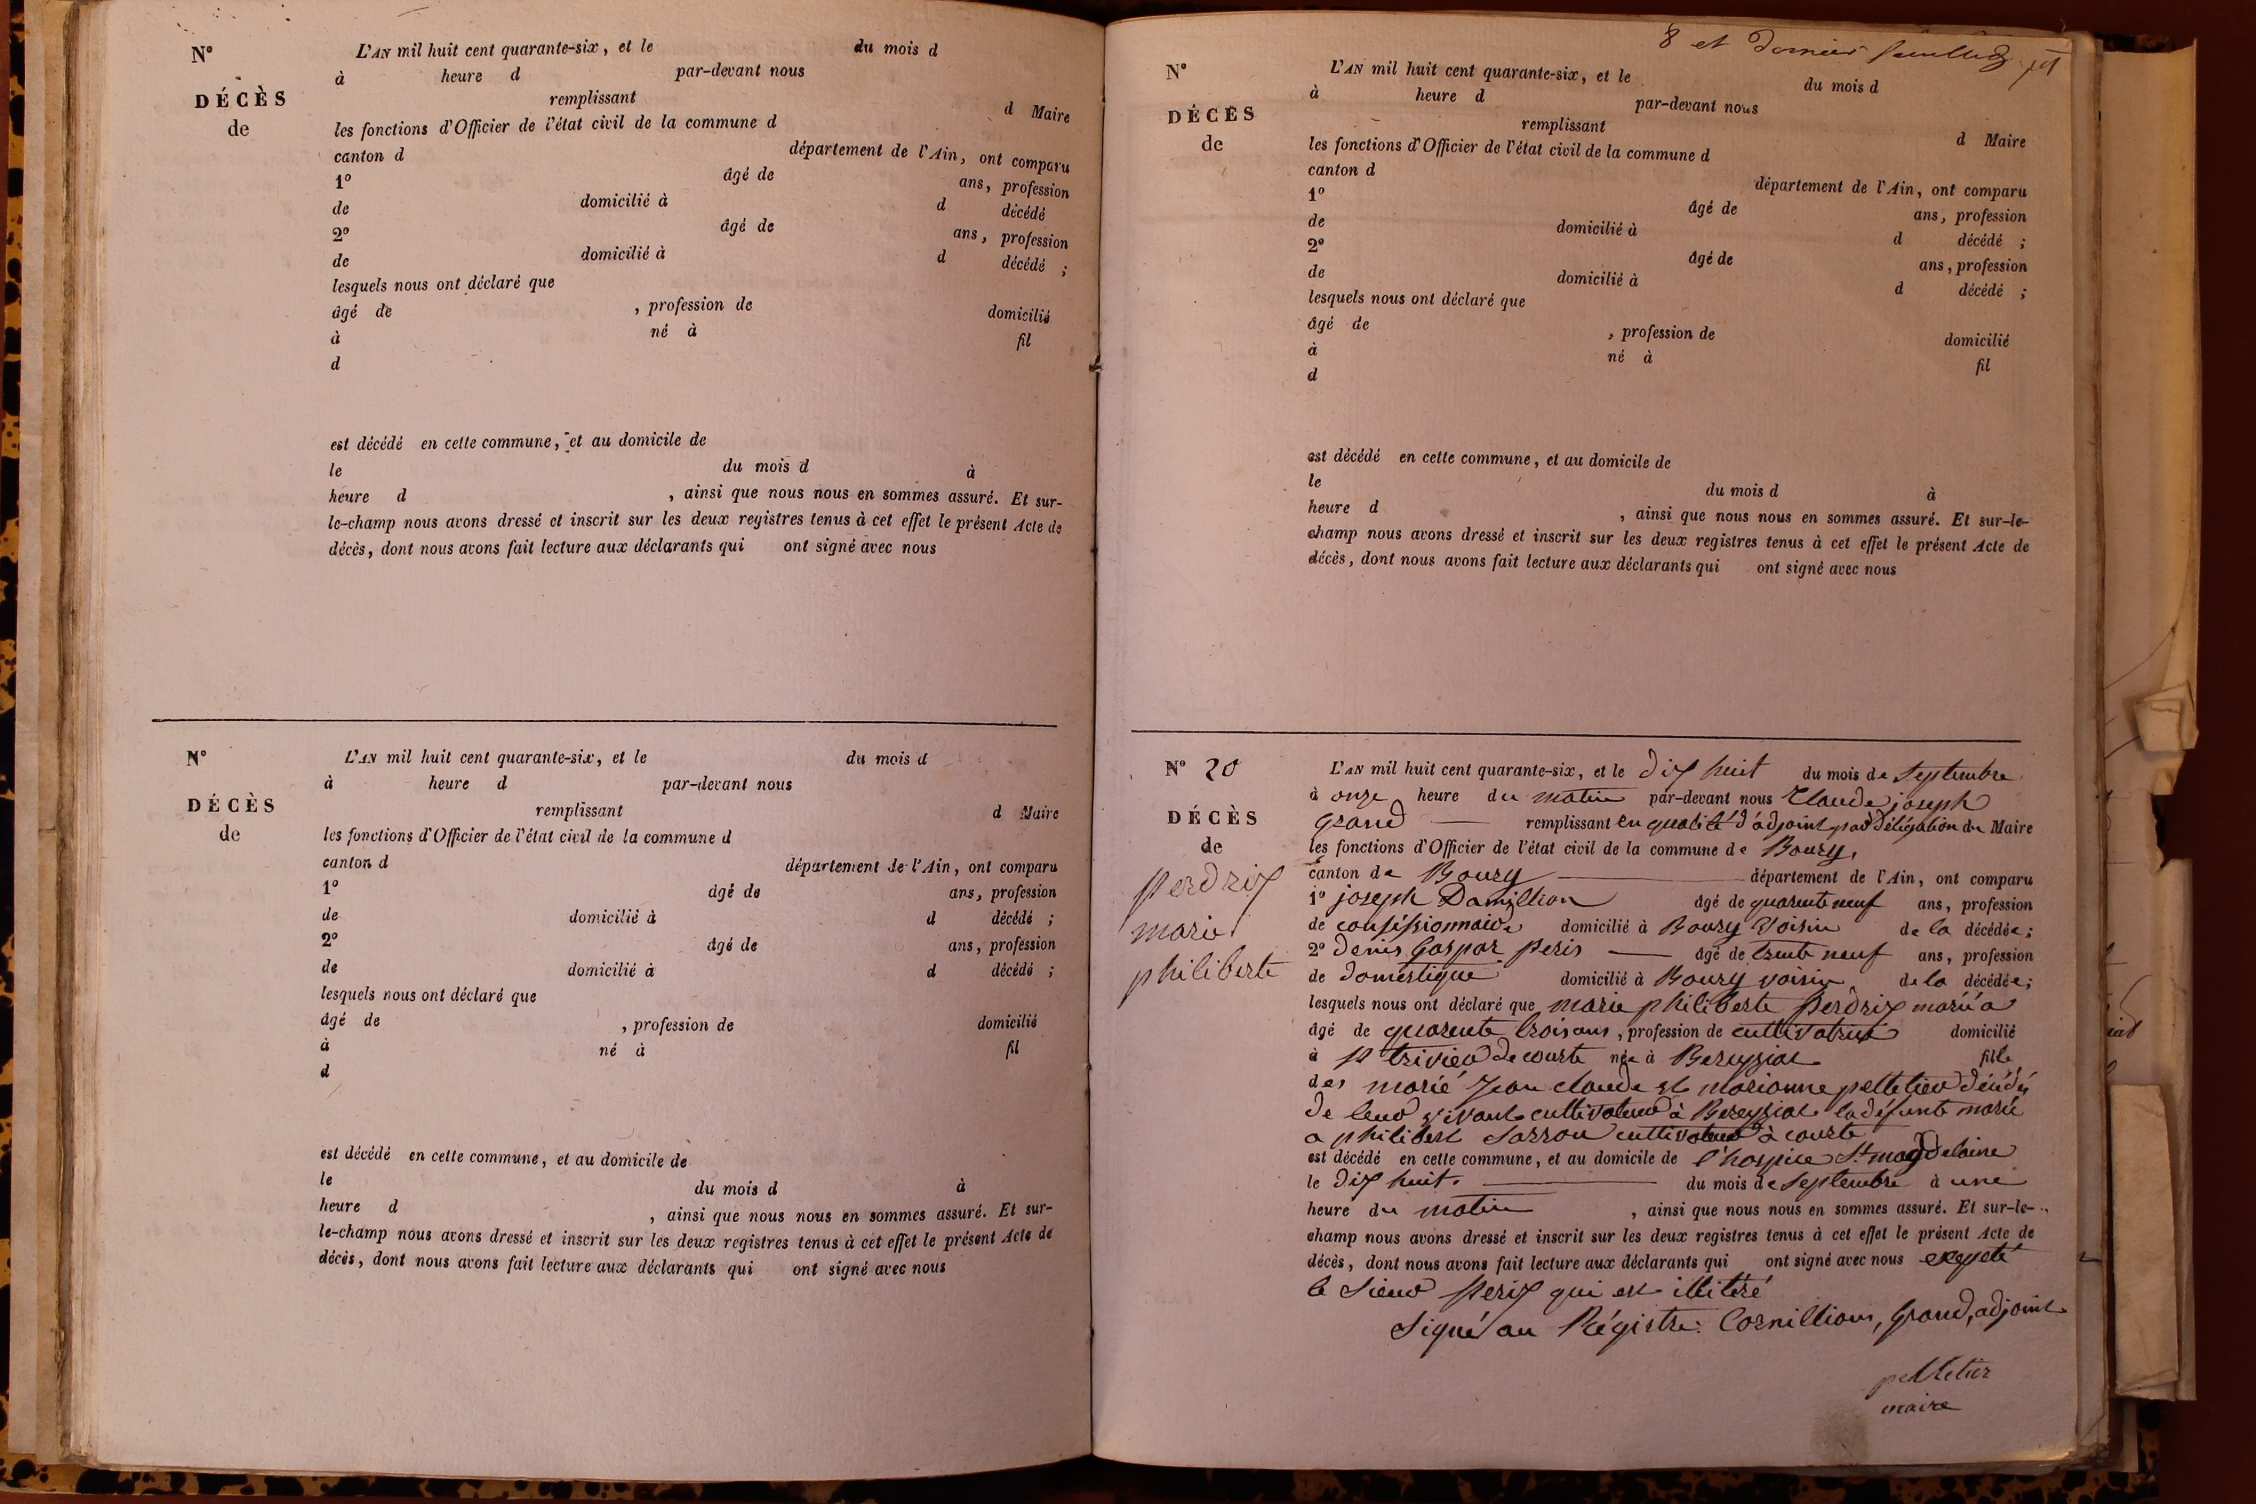 N°
DÉCÈS
de
L'AN mil huit cent quarante-six, et le du mois d
à heure d par-devant nous
remplissant d Maire
les fonctions d'Officier de l'état civil de la commune d
canton d département de l'Ain, ont comparu
1° âgé de ans, profession
de domicilié à d décédé
2° âgé de ans, profession
de domicilié à d décédé ;
lesquels nous ont déclaré que
âgé de , profession de domicilié
à né à fil
d
est décédé en cette commune, et au domicile de
le du mois d à
heure d , ainsi que nous nous en sommes assuré. Et sur-
le-champ nous avons dressé et inscrit sur les deux registres tenus à cet effet le présent Acte de
décès, dont nous avons fait lecture aux déclarants qui ont signé avec nous
N°
DÉCÈS
de
L'AN mil huit cent quarante-six, et le du mois d
à heure d par-devant nous
remplissant d Maire
les fonctions d'Officier de l'état civil de la commune d
canton d département de l'Ain, ont comparu
1° âgé de ans, profession
de domicilié à d décédé ;
2° âgé de ans, profession
de domicilié à d décédé ;
lesquels nous ont déclaré que
âgé de , profession de domicilié
à né à fil
d
est décédé en cette commune, et au domicile de
le du mois d à
heure d , ainsi que nous nous en sommes assuré. Et sur-
le-champ nous avons dressé et inscrit sur les deux registres tenus à cet effet le présent Acte de
décès, dont nous avons fait lecture aux déclarants qui ont signé avec nous
8 et dernier feuillet
N°
DÉCÈS
de
L'AN mil huit cent quarante-six, et le du mois d
à heure d par-devant nous
remplissant d Maire
les fonctions d'Officier de l'état civil de la commune d
canton d département de l'Ain, ont comparu
1° âgé de ans, profession
de domicilié à d décédé ;
2° âgé de ans, profession
de domicilié à d décédé ;
lesquels nous ont déclaré que
âgé de , profession de domicilié
à né à fil
d
est décédé en cette commune, et au domicile de
le du mois d à
heure d , ainsi que nous nous en sommes assuré. Et sur-le-
champ nous avons dressé et inscrit sur les deux registres tenus à cet effet le présent Acte de
décès, dont nous avons fait lecture aux déclarants qui ont signé avec nous
N° 20
DÉCÈS
de
perdrix
marie
philiberte
L'AN mil huit cent quarante-six, et le dix huit du mois de Septembre
à onze heure du matin par-devant nous Claude joseph
Grand remplissant en qualité d'adjoint par délégation du Maire
les fonctions d'Officier de l'état civil de la commune de Bourg,
canton de Bourg département de l'Ain, ont comparu
1° joseph âgé de quarente neuf ans, profession
de domicilié à Bourg Voisin de la décédée ;
2° denis Gaspar peris âgé de trente neuf ans, profession
de domestique domicilié à Bourg voisin de la décédée ;
lesquels nous ont déclaré que marie philiberte perdrix
âgé de quarente trois ans, profession de cultivatrice domicilié
à St trivier de courte née à Bereyziat fille
des marié Jean claude et marianne pelletier décédés
de leur vivant cultivateur à Bereyziat la défunte marié
a philibert cultivateur à courte
est décédé en cette commune, et au domicile de l'hospice St magdelaine
le dix huit. du mois de Septembre à une
heure du matin , ainsi que nous nous en sommes assuré. Et sur-le-
champ nous avons dressé et inscrit sur les deux registres tenus à cet effet le présent Acte de
décès, dont nous avons fait lecture aux déclarants qui ont signé avec nous excepté
le sieur perix qui est illitéré
Signé au Régistre: Cornillion, Grand, adjoint
pelletier
maire